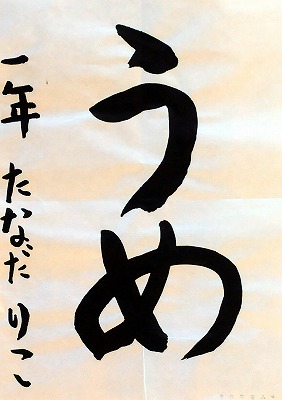 うめ
一年 たなだ りこ